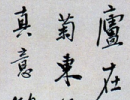 廬在
菊東
真意